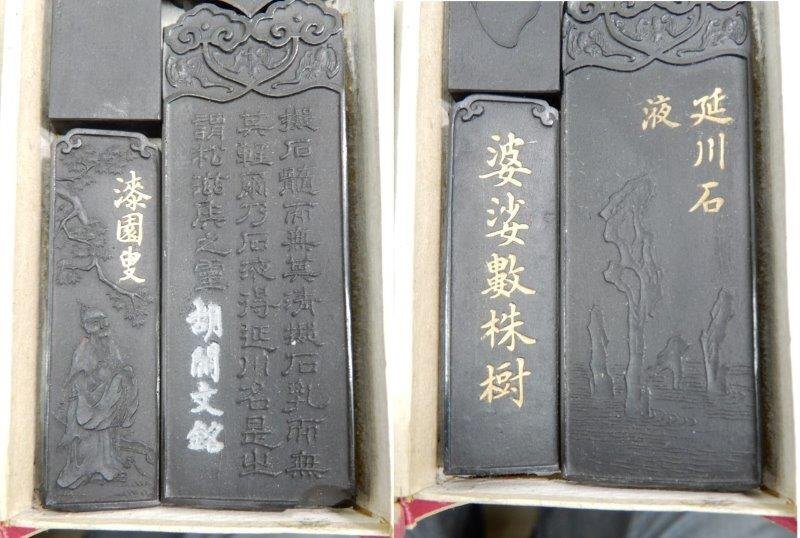 漆園叟
擬石髓而無其清擬石乳而無
其輕爾乃石液得延川名是之
謂松滋侯之靈
胡開文銘
延川石
液
婆娑數株樹